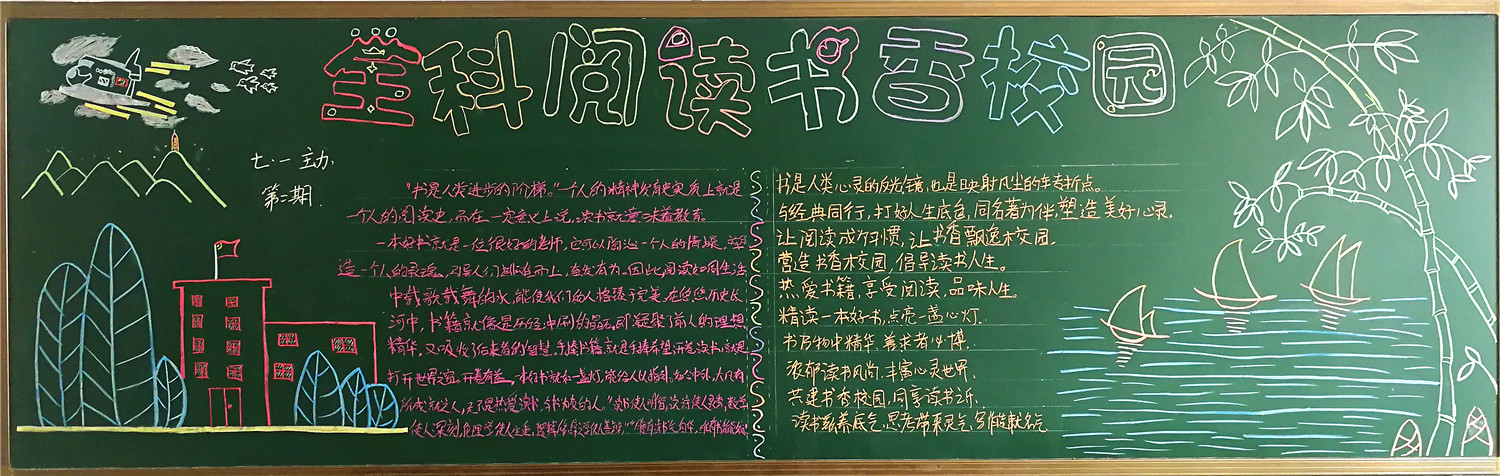 全科阅读书香校园
七·一主办
第二期
"书是人类进步的阶梯。"一个人的精神发育史实质上就是
一个人的阅读史,而在一定意义上说,读书就意味着教育。
一本好书就是一位很好的老师,它可以陶冶一个人的情操,塑
造一个人的灵魂,引导人们 奋发有为。因此,阅读如同生活
中载歌载舞的水,能使我们的人格臻于完美。在悠悠历史长
河中,书籍就像是历经冲刷的 ,即凝聚了前人的理想
精华,又吸收了后来者的智慧。手捧书籍,就是手捧希望,开卷读书,就是
打开世界窗。开卷有益。一本好书就如一盏灯,能给人以指引。
使人深刻,伦理学使人庄重
书是人类心灵的反光镜,也是映射风尘的车转折点。
与经典同行,打好人生底色,同名著为伴,塑造美好心录。
让阅读成为习惯,让书香飘逸校园。
营造书香校园,倡导读书人生。
热爱书籍,享受阅读,品味人生。
精读一本好书,点亮一盏心灯。
书乃物中精华,善求者必博。
浓郁读书风尚,丰富心灵世界。
共建书香校园,同享读书之乐。
读书滋养底气,思考带来灵气,写作造就名气